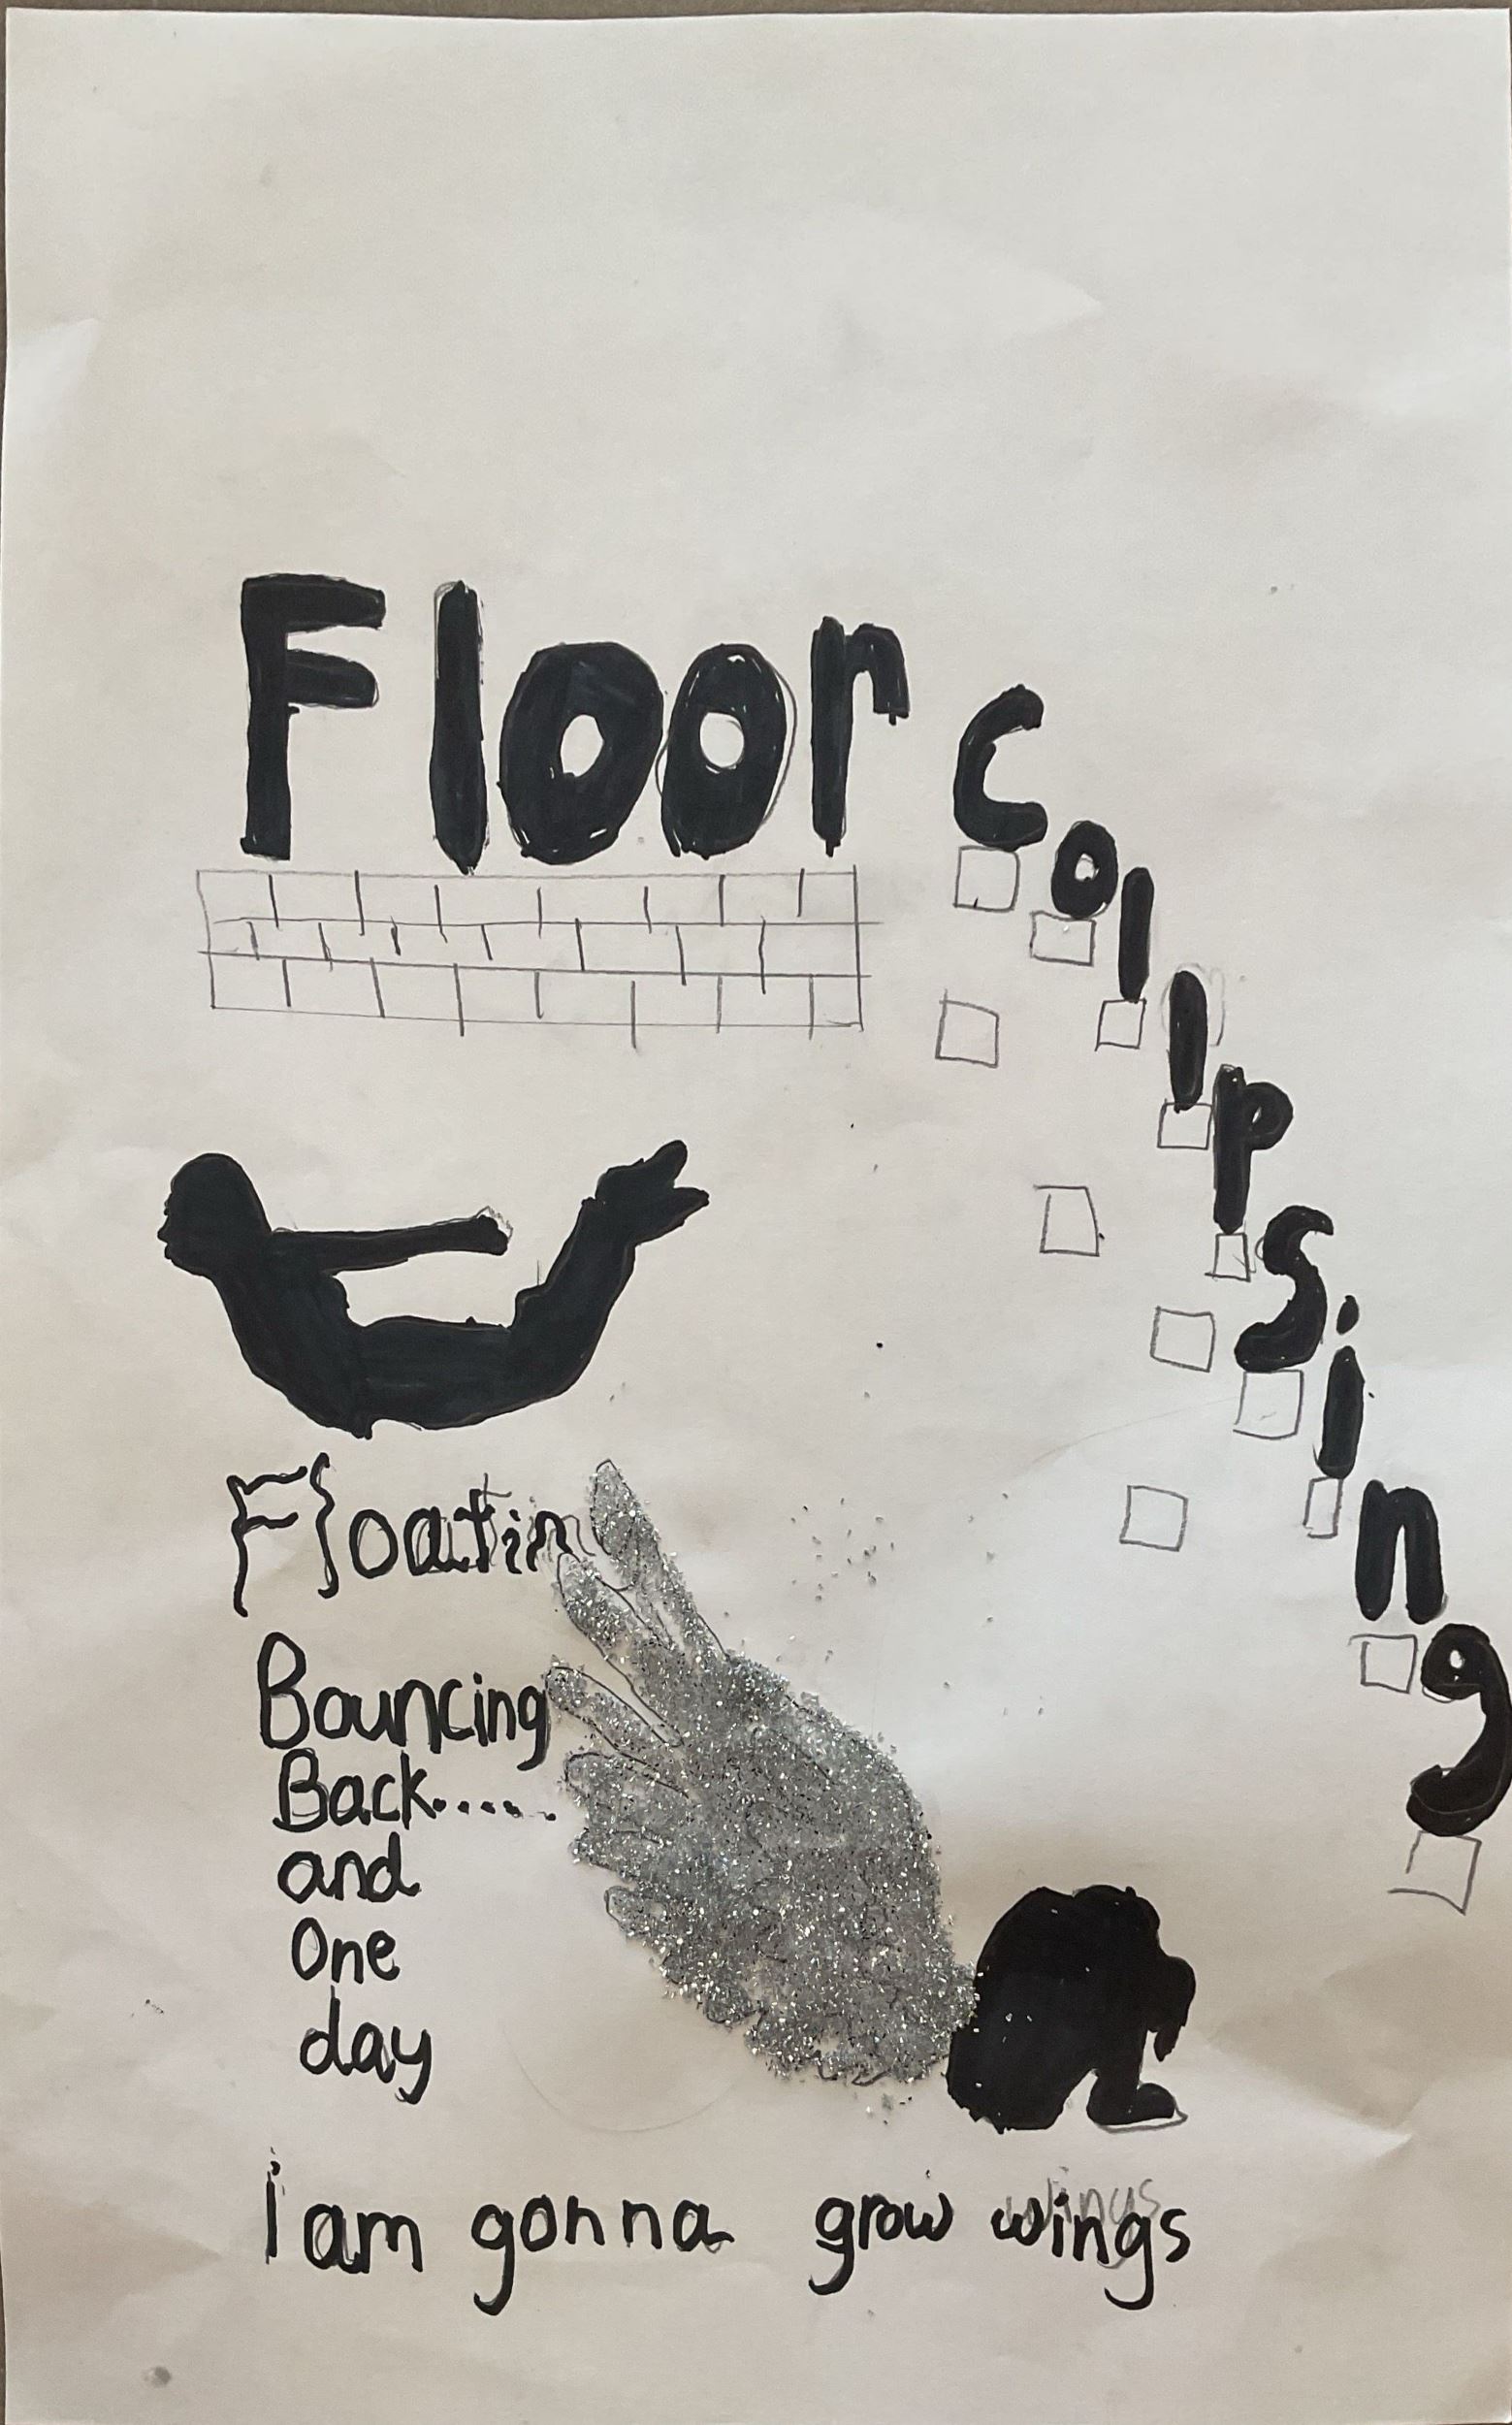 Floor collpsing
Floatin
Bouncing
Back.....
and
One
day
i am gonna grow wings